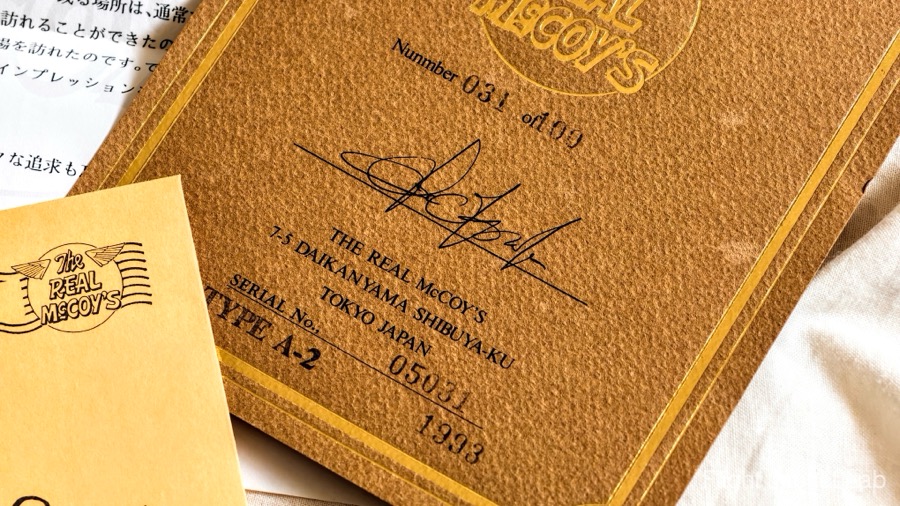 る場所は、通常
訪れることができたの
場を訪れたのです。で
インプレッション
な追求も
REAL
McCOY'S
Nunmber 031 of 100
THE REAL McCOY'S
7-5 DAIKANYAMA SHIBUYA-KU
TOKYO JAPAN
SERIAL No.
TYPE A-2
05031
1993
The
REAL
McCOY'S